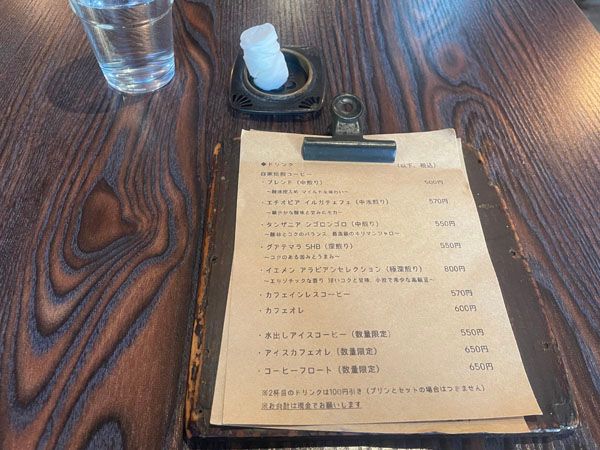 ◆ドリンク (以下、税込)
自家焙煎コーヒー
・ブレンド（中煎り） 500円
～酸味控えめ マイルドな味わい～
・エチオピア イルガチェフェ（中浅煎り） 570円
～華やかな酸味と甘みにモカ～
・タンザニア シゴロンゴロ（中煎り） 550円
～酸味とコクのバランス 最高級のキリマンジャロ～
・グアテマラ SHB（深煎り） 550円
～コクのある苦みとうまみ～
・イエメン アラビアンセレクション（極深煎り） 800円
～エキゾチックな香り 甘いコクと苦味、小粒で希少な高級豆～
・カフェインレスコーヒー 570円
・カフェオレ 600円
・水出しアイスコーヒー（数量限定） 550円
・アイスカフェオレ（数量限定） 650円
・コーヒーフロート（数量限定） 650円
※2杯目のドリンクは100円引き（プリンとセットの場合はつきません）
※お会計は現金でお願いします